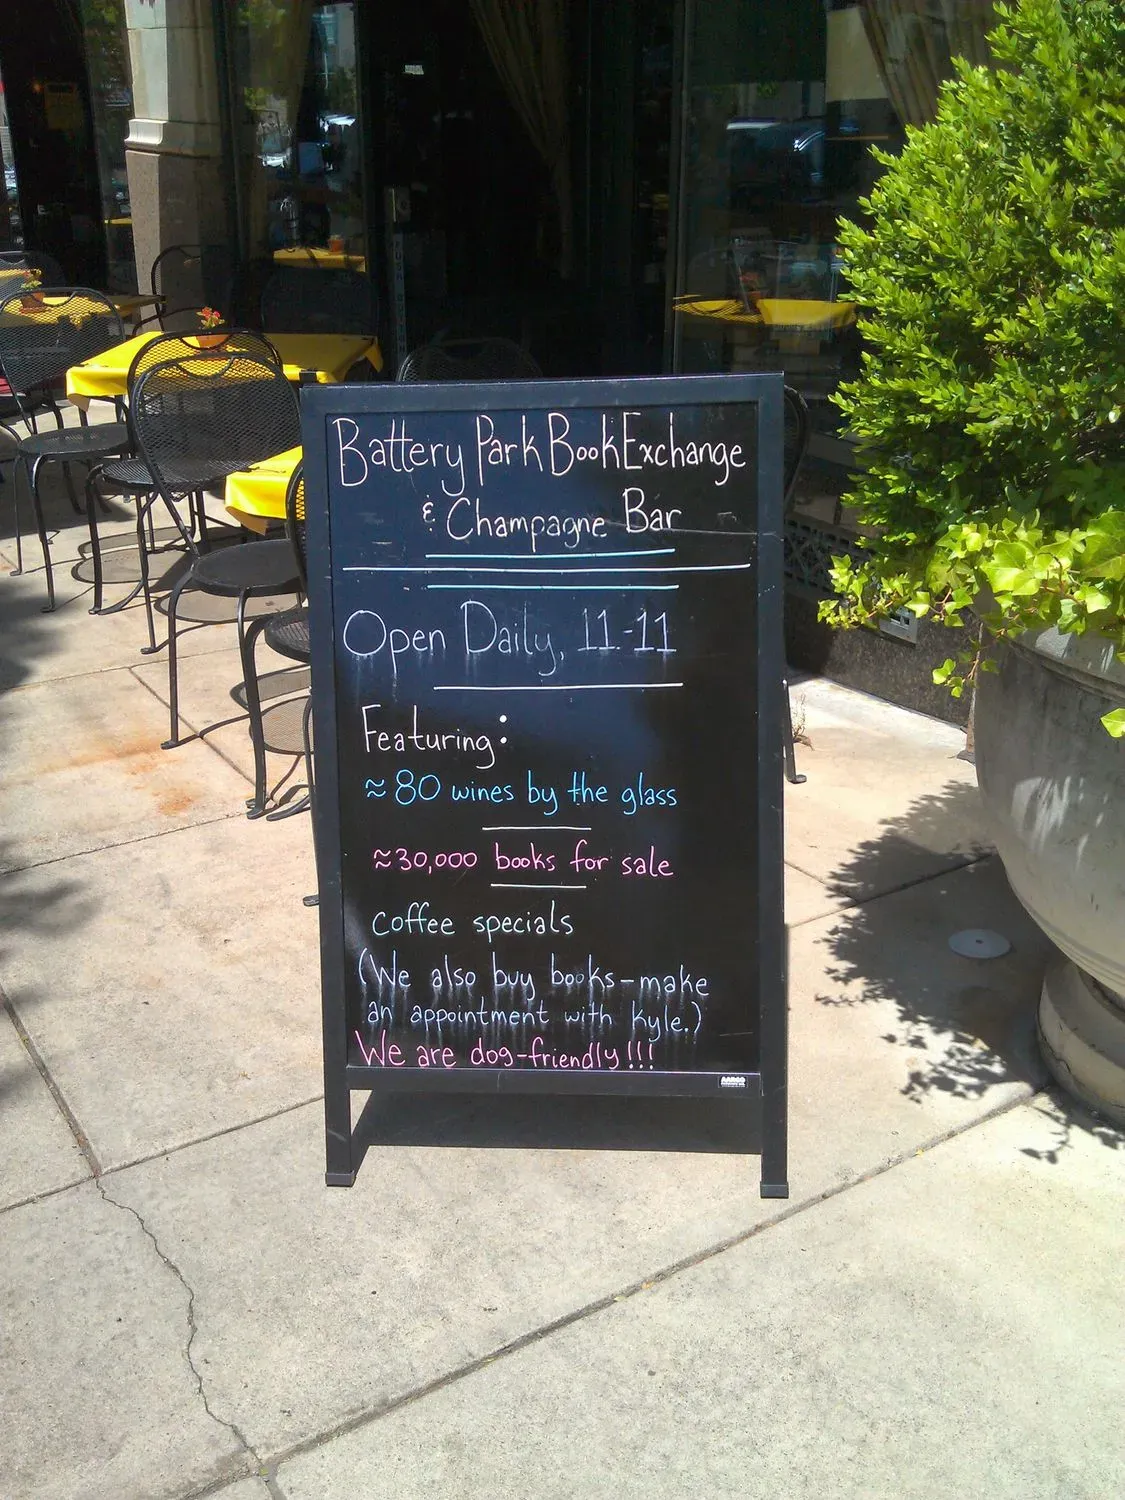 Battery Park Book Exchange
& Champagne Bar
Open Daily, 11-11
Featuring:
≈ 80 wines by the glass
≈30,000 books for sale
coffee specials
(We also buy books-make
an appointment with Kyle.)
We are dog-friendly!!!